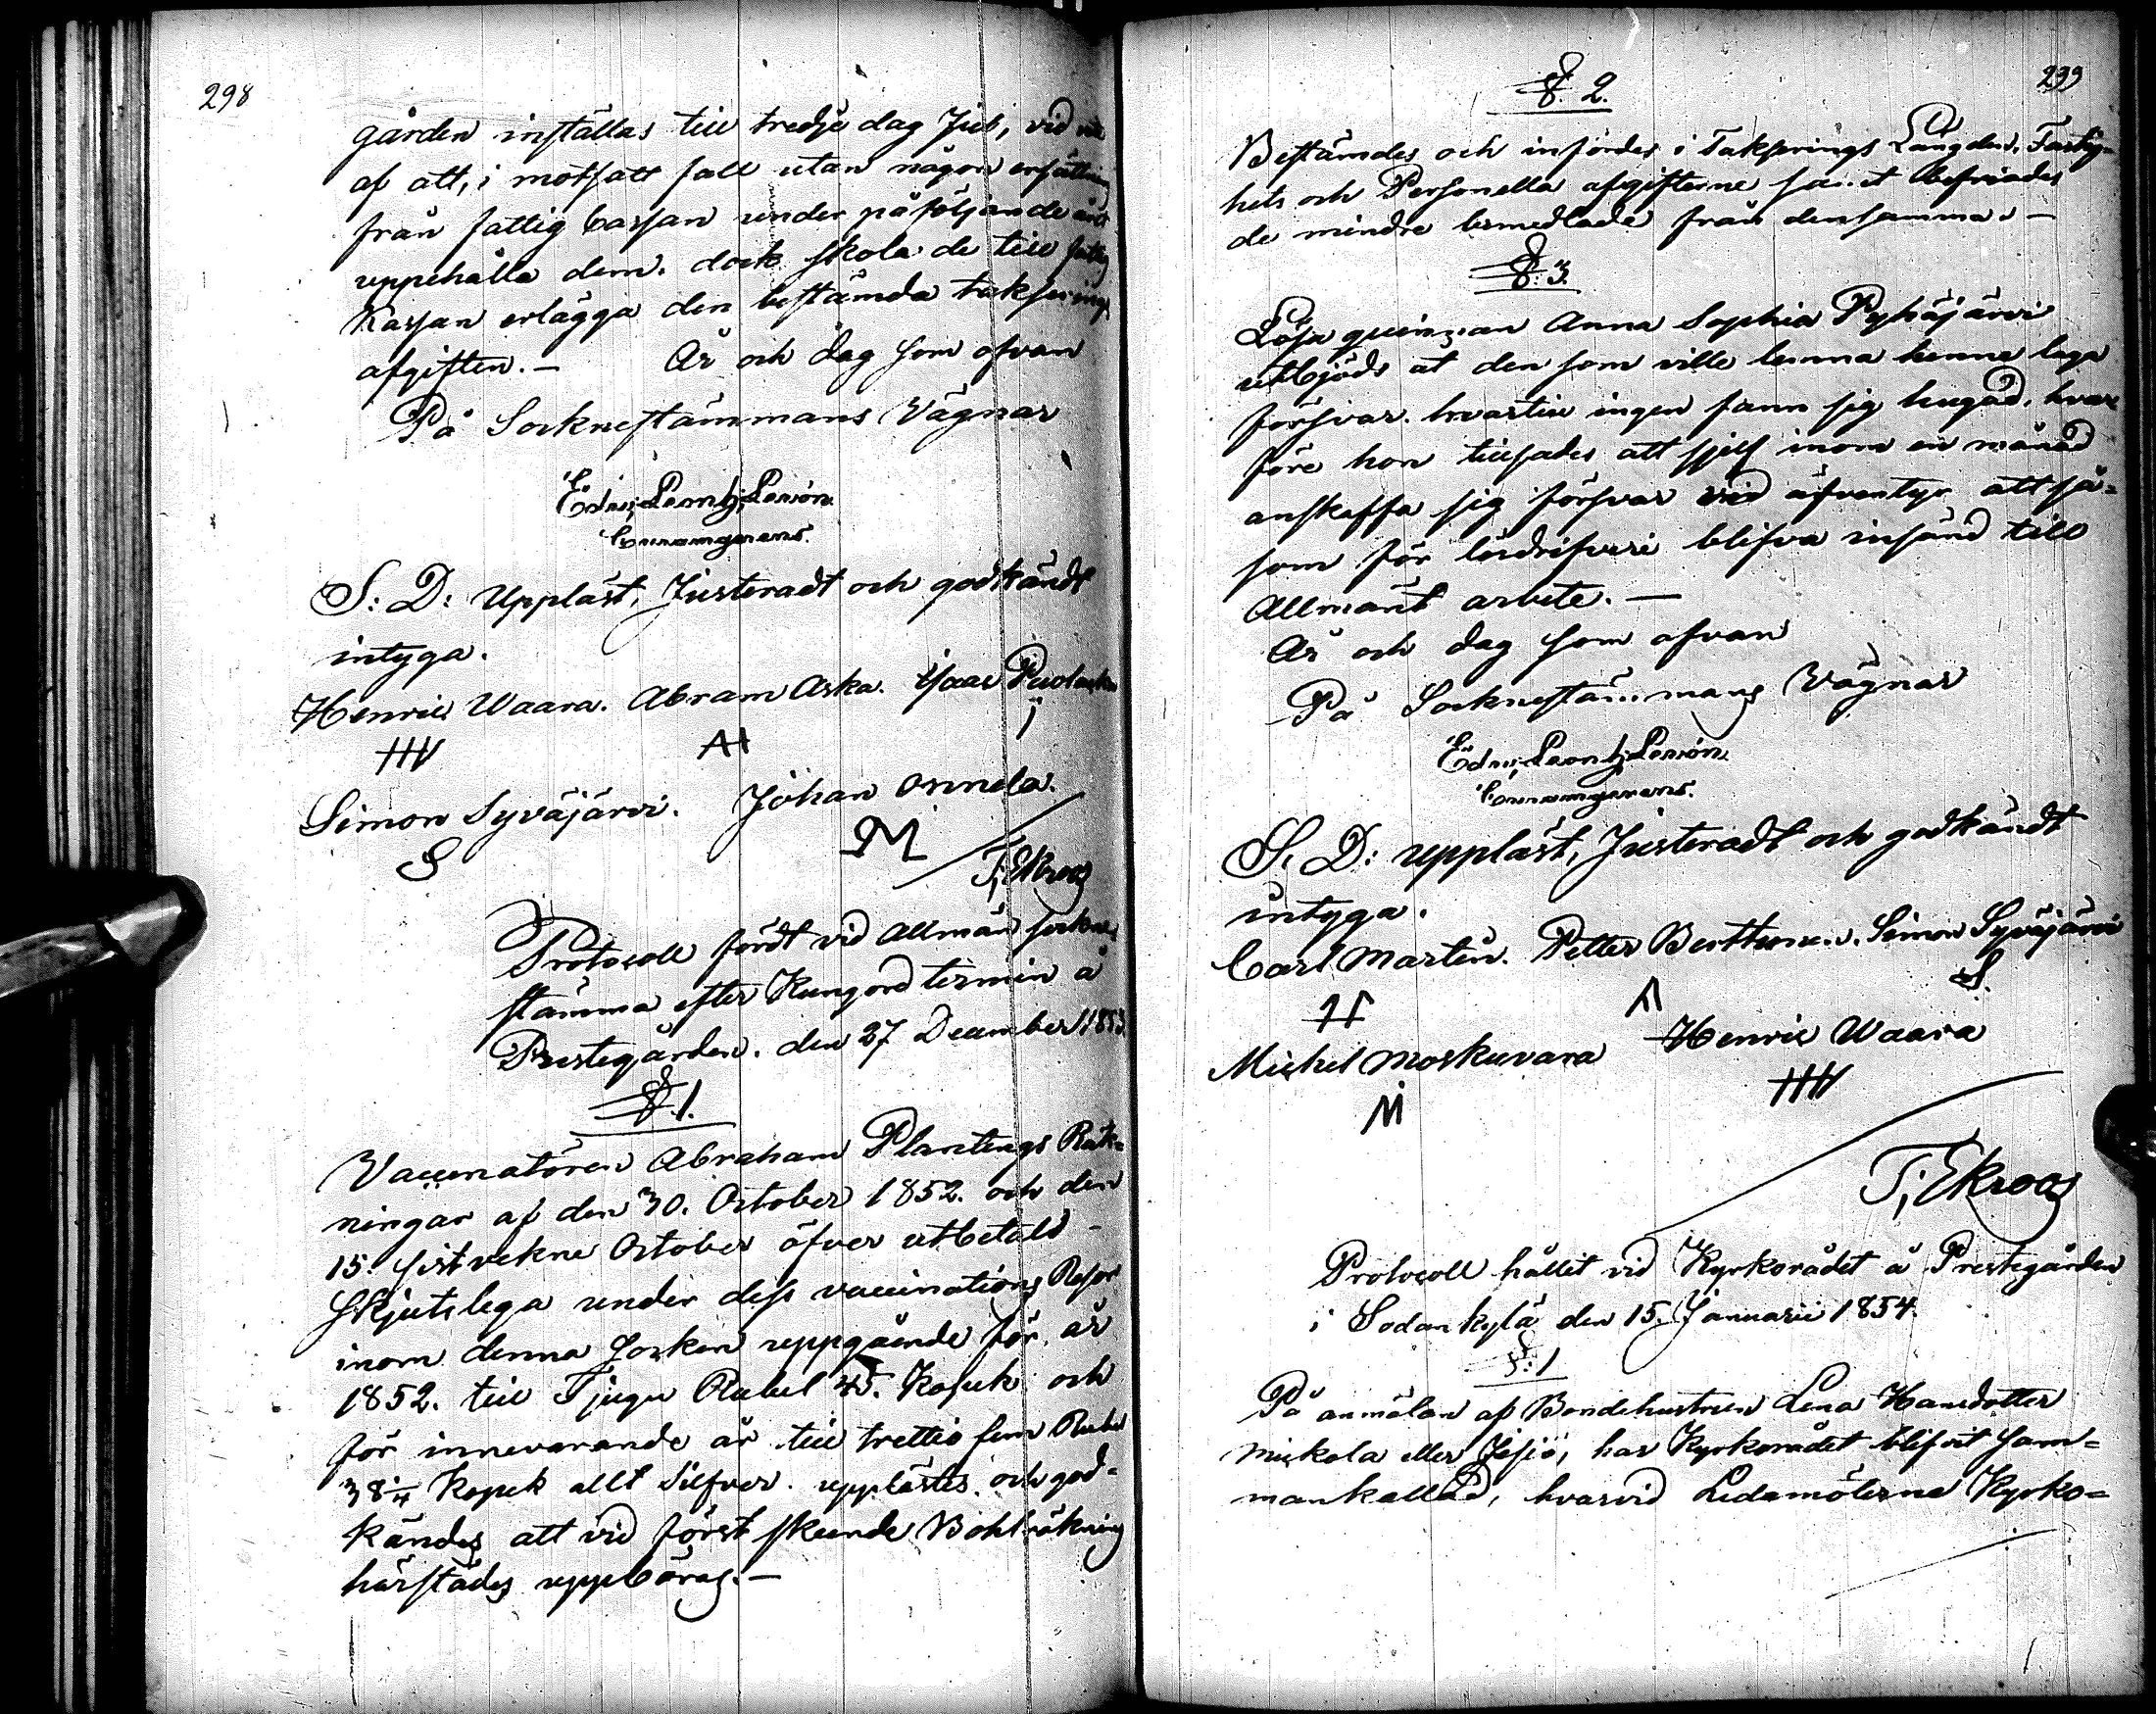 298
gården inställas till tredje dag Jul, vid
af att, i motsatt fall utan någon ersättning
från fattig Cassan under påföljande året
uppehålla dem. dock skola de till fattig
Kassan erlägga den bestämda taxerings
afgiften. — År och dag som ofvan
På Socknestämmans Vägnar
S: D: Uppläst, Justeradt och godkändt
intyga.
Henric Waara. Abram Aska. Isaac
HW AA I
Simon Syväjärvi. Johan Onnela.
S M
T. Ekroos
Protocoll fördt vid Allmän sockne
stämma efter Kungörd termin å
Prestegården. den 27 December 1853
§. 1.
Vaccinatören Abraham Plantings Räk=
ningar af den 30. October 1852. och den
15. sistvekne October öfver utbetald
skjutslega under dess vaccinations Resor
inom denna Socken uppgående för år
1852. till Tjugu Rubel 45. Kopek och
för innevarande år till trettio fem Rubel
38 1/4 Kopek allt Silfver. upplästes. och god=
kändes att vid först skeende Bohlräkning
härstädes uppbäras. —
299
§. 2.
Bestämdes och infördes i Taxerings Längden. Fastig=
hets och Personella afgifterne samt befriades
de mindre bemedlade från densamma. —
§. 3.
Lösa qvinnan Anna Sophia Pyhäjärvi
utbjöds at den som ville lemna henne laga
försvar. hvartill ingen fann sig hugad, hvar
före hon tillsades att sjelf inom en månad
anskaffa sig försvar vid äfventyr att så=
som för lösdrifveri blifva insänd till
Allmänt arbete. —
År och dag som ofvan
På Socknestämmans Vägnar
S. D: uppläst, Justeradt och godkändt
intyga.
Carl Martin. Petter Berttunen. Simon Syväjärvi
S.
Michel Moskuvara Henric Waara
M HW
T. Ekroos
Protocoll hållit vid Kyrkorådet å Prestegården
i Sodankylä den 15. Januarii 1854.
§: 1
På anmälan af Bondehustrun Lena Hansdotter
Mickola eller Jesiö, har Kyrkorådet blifvit sam=
mankallad, hvarvid Ledamöterne Kyrko=